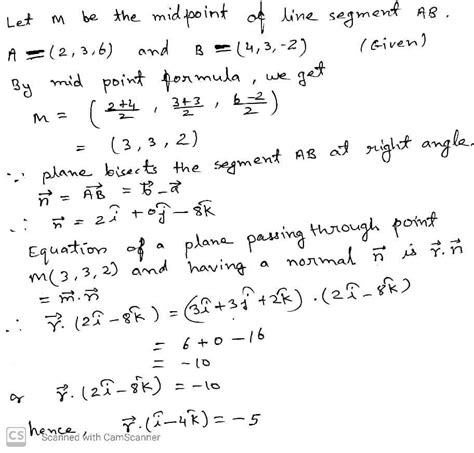 Let M be the midpoint of line segment AB.
A = (2,3,6) and B = (4,3,-2) (Given)
By mid point formula, we get
M = ( 2+4/2 , 3+3/2 , 6-2/2 )
= (3, 3, 2)
∵ plane bisects the segment AB at right angle.
n⃗ = AB⃗ = b⃗ - a⃗
∴ n⃗ = 2î + 0ĵ - 8k̂
Equation of a plane passing through point
M(3, 3, 2) and having a normal n⃗ is r⃗.n⃗
= m⃗.n⃗
∴ r⃗. (2î - 8k̂) = (3î + 3ĵ + 2k̂) . (2î - 8k̂)
= 6 + 0 - 16
= -10
or r⃗. (2î - 8k̂) = -10
hence, r⃗. (î - 4k̂) = -5
CS Scanned with CamScanner